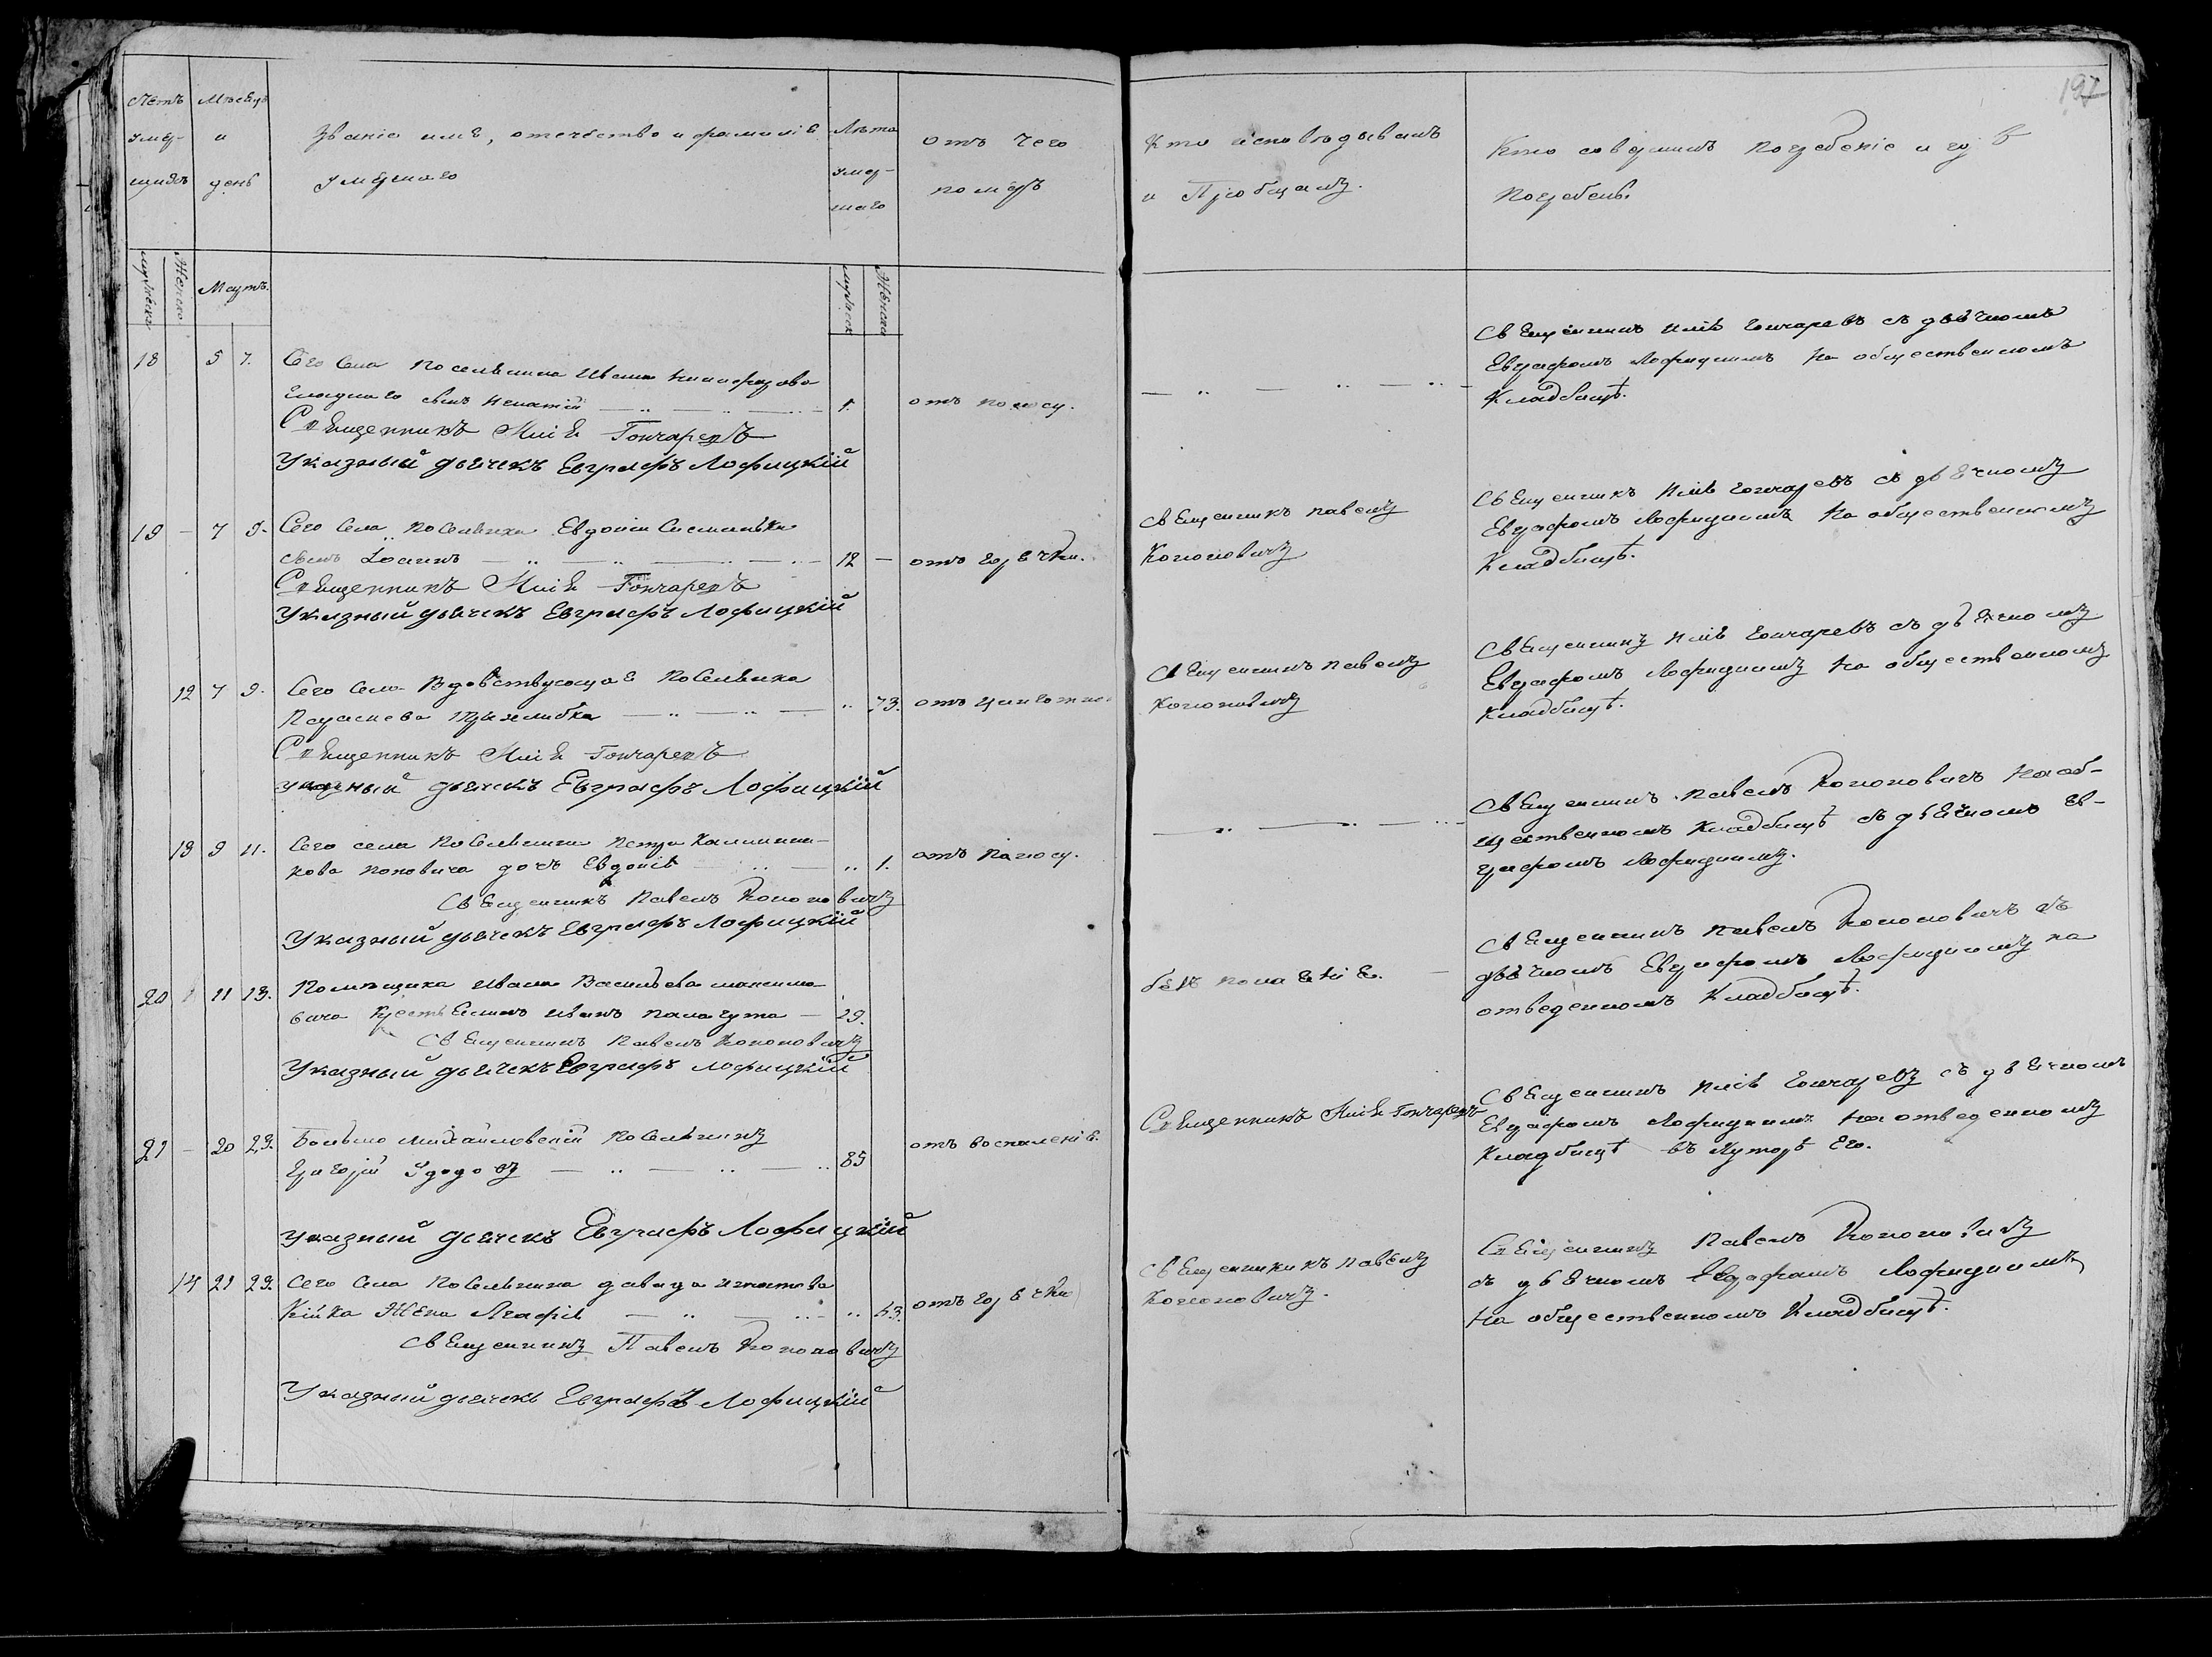 197
Счетъ умер-шихъ
Мѣсяцъ и день
Званіе имя, отечество и фамилія
умершаго
Лѣта умер-шаго
отъ чего
померъ
Кто исповѣдывалъ
и Пріобщалъ.
Кто совершилъ погребеніе и гдѣ
погребены.
мужеска
Женска
Мартъ.
мужеск
Женска
18 5 7. Сего Села поселянина Ивана
сынъ Игнатій 1. отъ поносу.
Священникъ Илія Гончаревъ
Указный дьячекъ Евграфъ Лофицкій
Священникъ Илія Гончаревъ съ дьячкомъ
Евграфомъ Лофицкимъ на общественномъ
Кладбищѣ.
19 - 7 9. Сего Села поселянки Евдокіи
сынъ Іоаннъ 12 - отъ горячки.
Священникъ Илія Гончаревъ
Указный дьячекъ Евграфъ Лофицкій
Священникъ Павелъ
Кононовичъ
Священникъ Илія Гончаревъ съ дьячкомъ
Евграфомъ Лофицкимъ на общественномъ
Кладбищѣ.
12 7 9. Сего Села Вдовствующая поселянка
73. отъ
Священникъ Илія Гончаревъ
указный дьячекъ Евграфъ Лофицкій
Священникъ Павелъ
Кононовичъ
Священникъ Илія Гончаревъ съ дьячкомъ
Евграфомъ Лофицкимъ на общественномъ
Кладбищѣ.
13 9 11. Сего села поселянина Петра Каллини-
кова Поповича дочь Евдокія 1. отъ поносу.
Священникъ Павелъ Кононовичъ
Указный дьячекъ Евграфъ Лофицкій
Священникъ Павелъ Кононовичъ на об-
щественномъ Кладбищѣ съ дьячкомъ Ев-
графомъ Лофицкимъ.
20 11 13. Помѣщика Ивана Васильева Максимо-
вича Крестьянинъ Иванъ 29.
Священникъ Павелъ Кононовичъ
Указный дьячекъ Евграфъ Лофицкій
Священникъ Павелъ Кононовичъ съ
дьячкомъ Евграфомъ Лофицкимъ на
отведенномъ Кладбищѣ.
21 - 20 23. Больше Михайловскій поселянинъ
Григорій 85 отъ воспаленія.
указный дьячекъ Евграфъ Лофицкій
Священникъ Илія Гончаревъ
Священникъ Илія Гончаревъ съ дьячкомъ
Евграфомъ Лофицкимъ на отведенномъ
Кладбищѣ въ Хуторѣ Его.
14 21 23. Сего Села поселянина Давида Игнатова
Жена Агафія 53. отъ горячки
Священникъ Павелъ Кононовичъ
Указный дьячекъ Евграфъ Лофицкій
Священникъ Павелъ
Кононовичъ.
Священникъ Павелъ Кононовичъ
съ дьячкомъ Евграфомъ Лофицкимъ
на общественномъ Кладбищѣ.